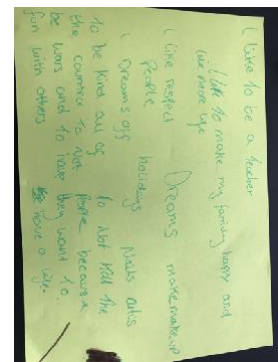 I like to be a teacher
I like to make my family happy and
live more life
I like respect Dreams makemakeup
People
I Dreams off holidays Nails artis
to be kind all of to Not Kill the
the country to Not People because
be wars and to have they want to
fun with others have a life.